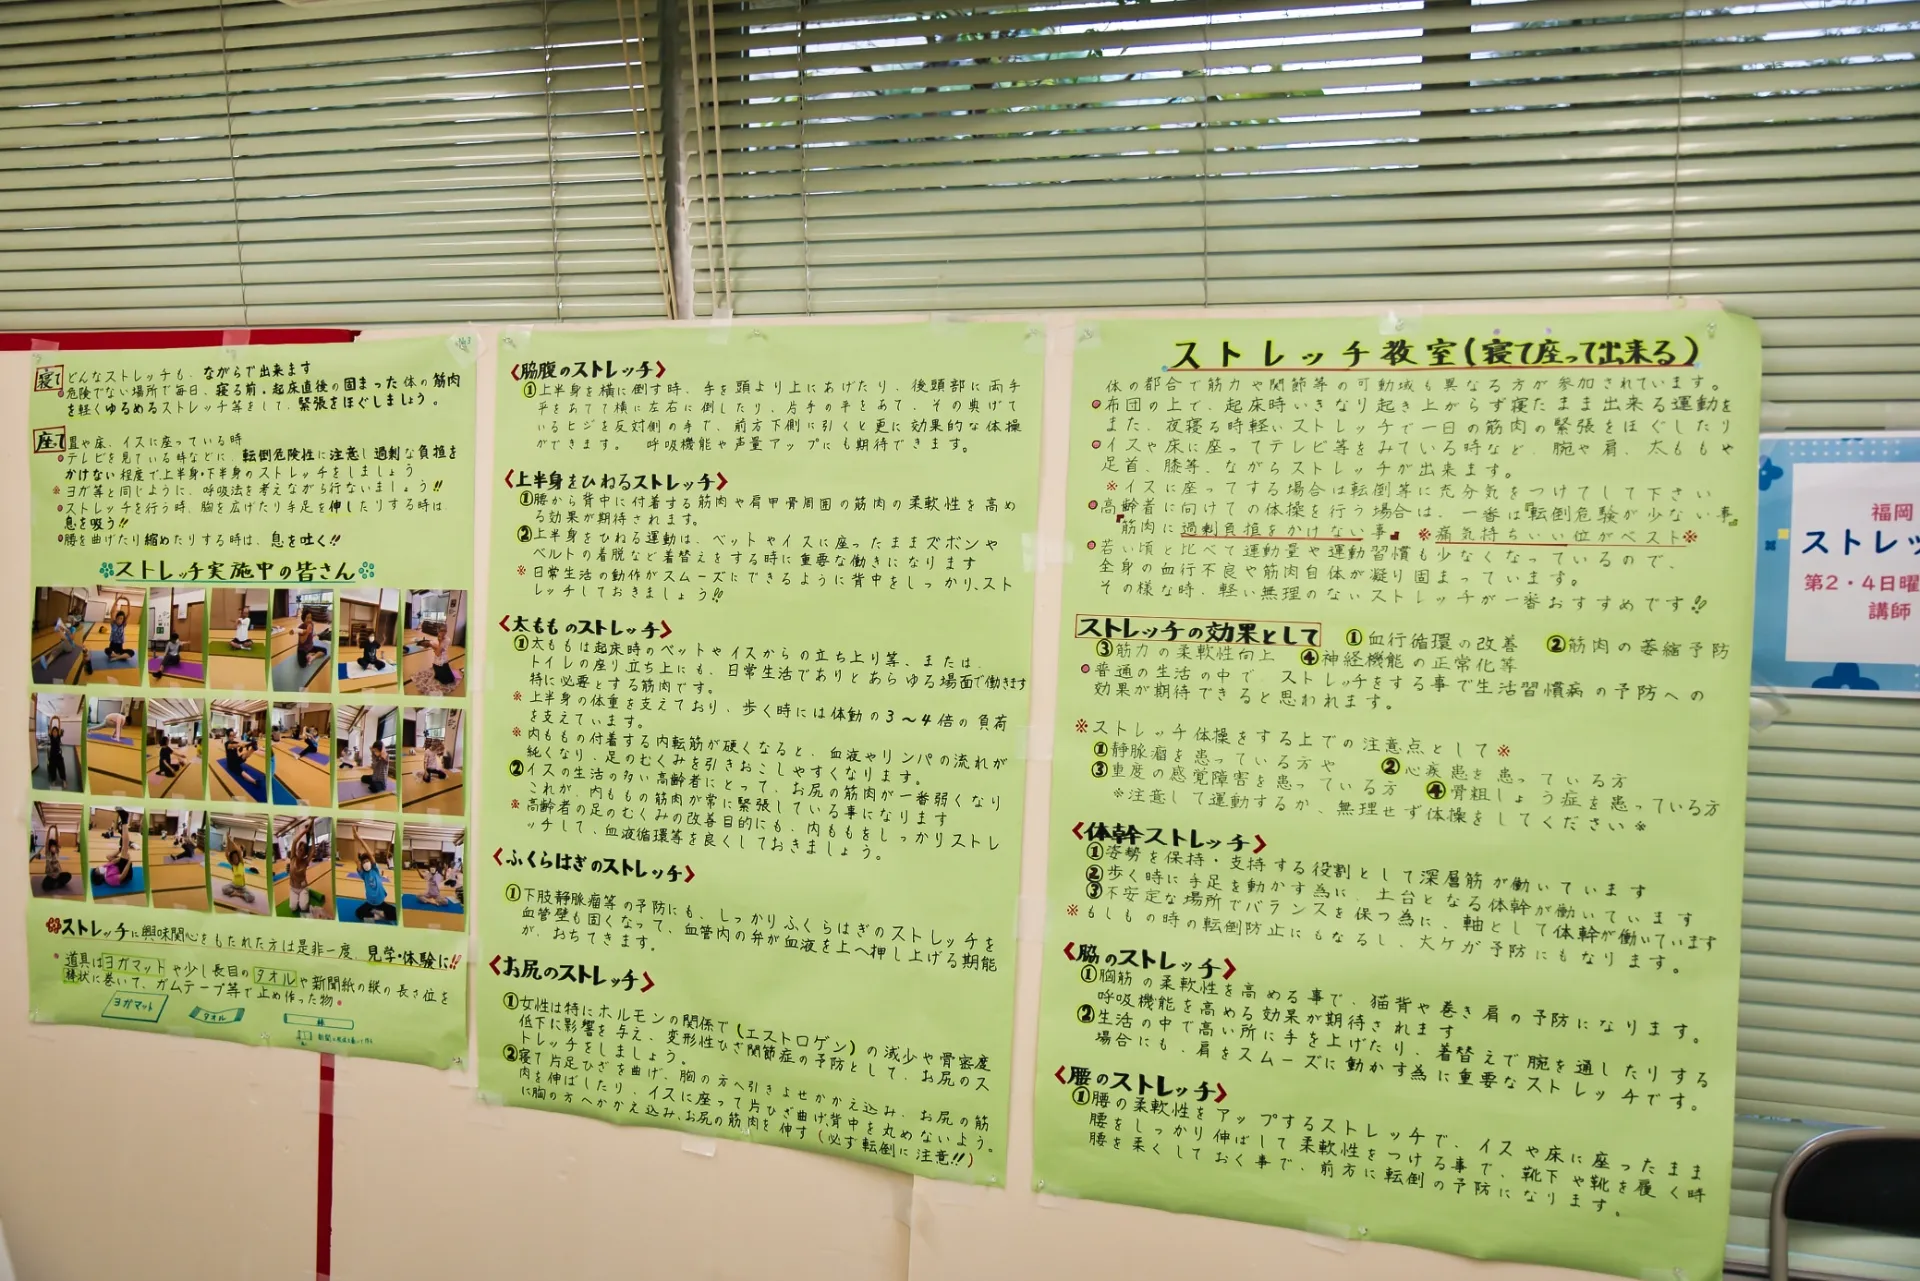 ストレッチ教室(寝て座って出来る)
体の都合で筋力や関節等の可動域も異なる方が参加されています。
布団の上で、起床時いきなり起き上がらず寝たまま出来る運動を
また、夜寝る時軽いストレッチで一日の筋肉の緊張をほぐしたり
イスや床に座ってテレビ等をみている時など、腕や肩、太ももや
足首、膝等、ながらストレッチが出来ます。
※イスに座ってする場合は転倒等に充分気をつけてして下さい
高齢者に向けての体操を行う場合は、一番は『転倒危険が少ない事』
『筋肉に過剰負担をかけない事』 ※痛気持ちいい位がベスト※
若い頃と比べて運動量や運動習慣も少なくなっているので、
全身の血行不良や筋肉自体が凝り固まっています。
その様な時、軽い無理のないストレッチが一番おすすめです!!
ストレッチの効果として ①血行循環の改善 ②筋肉の萎縮予防
③筋力の柔軟性向上 ④神経機能の正常化等
普通の生活の中で ストレッチをする事で生活習慣病の予防への
効果が期待できると思われます。
※ストレッチ体操をする上での注意点として※
①静脈瘤を患っている方や ②心疾患を患っている方
③重度の感覚障害を患っている方 ④骨粗しょう症を患っている方
※注意して運動するか、無理せず体操をしてください※
〈体幹ストレッチ〉
①姿勢を保持・支持する役割として深層筋が働いています
②歩く時に手足を動かす為に、土台となる体幹が働いています
③不安定な場所でバランスを保つ為に、軸として体幹が働いています
※もしもの時の転倒防止にもなるし、大ケガ予防にもなります。
〈脇のストレッチ〉
①胸筋の柔軟性を高める事で、猫背や巻き肩の予防になります。
呼吸機能を高める効果が期待されます
②生活の中で高い所に手を上げたり、着替えで腕を通したりする
場合にも、肩をスムーズに動かす為に重要なストレッチです。
〈腰のストレッチ〉
①腰の柔軟性をアップするストレッチで、イスや床に座ったまま
腰をしっかり伸ばして柔軟性をつける事で、靴下や靴を履く時
腰を柔くしておく事で、前方に転倒の予防になります。
〈脇腹のストレッチ〉
①上半身を横に倒す時、手を頭より上にあげたり、後頭部に両手
平をあてて横に左右に倒したり、片手の平をあて、その曲げて
いるヒジを反対側の手で、前方下側に引くと更に効果的な体操
ができます。 呼吸機能や声量アップにも期待できます。
〈上半身をひねるストレッチ〉
①腰から背中に付着する筋肉や肩甲骨周囲の筋肉の柔軟性を高め
る効果が期待されます。
②上半身をひねる運動は、ベットやイスに座ったままズボンや
ベルトの着脱など着替えをする時に重要な働きになります
※日常生活の動作がスムーズにできるように背中をしっかり、スト
レッチしておきましょう!!
〈太もものストレッチ〉
①太ももは起床時のベットやイスからの立ち上り等、または、
トイレの座り立ち上にも、日常生活でありとあらゆる場面で働きます
特に必要とする筋肉です。
※上半身の体重を支えており、歩く時には体動の3～4倍の負荷
を支えています。
※内ももの付着する内転筋が硬くなると、血液やリンパの流れが
純くなり、足のむくみを引きおこしやすくなります。
②イスの生活の多い高齢者にとって、お尻の筋肉が一番弱くなり
これが、内ももの筋肉が常に緊張している事になります
※高齢者の足のむくみの改善目的にも、内ももをしっかりストレ
ッチして、血液循環等を良くしておきましょう。
〈ふくらはぎのストレッチ〉
①下肢静脈瘤等の予防にも、しっかりふくらはぎのストレッチを
血管壁も固くなって、血管内の弁が血液を上へ押し上げる期能
が、おちてきます。
〈お尻のストレッチ〉
①女性は特にホルモンの関係で(エストロゲン)の減少や骨密度
低下に影響を与え、変形性ひざ関節症の予防として、お尻のス
トレッチをしましょう。
②寝て片足ひざを曲げ、胸の方へ引きよせかかえ込み、お尻の筋
肉を伸ばしたり、イスに座って片ひざ曲げ、背中を丸めないよう。
に胸の方へかかえ込み、お尻の筋肉を伸す(必ず転倒に注意!!)
No3
寝て どんなストレッチも、ながらで出来ます
危険でない場所で毎日、寝る前・起床直後の固まった体の筋肉
を軽くゆるめるストレッチ等をして、緊張をほぐしましょう。
座って 畳や床、イスに座っている時
テレビを見ている時などに、転倒危険性に注意し過剰な負担を
かけない程度で上半身・下半身のストレッチをしましょう
※ヨガ等と同じように、呼吸法を考えながら行ないましょう!!
ストレッチを行う時、胸を広げたり手足を伸したりする時は、
息を吸う!!
腰を曲げたり縮めたりする時は、息を吐く!!
ストレッチ実施中の皆さん
ストレッチに興味関心をもたれた方は是非一度、見学・体験に!!
道具はヨガマットや少し長目のタオルや新聞紙の縦の長さ位を
棒状に巻いて、ガムテープ等で止め作った物
ヨガマット
タオル
棒
福岡
ストレッ
第2・4日曜
講師